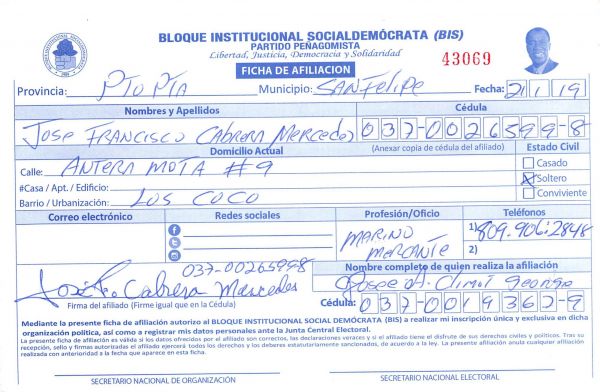 BLOQUE INSTITUCIONAL SOCIALDEMÓCRATA (BIS)
PARTIDO PEÑAGOMISTA
Libertad, Justicia, Democracia y Solidaridad
43069
FICHA DE AFILIACION
Provincia: Pto Pta Municipio: SAN Felipe Fecha: 2/1/19
Nombres y Apellidos Cédula
Jose Francisco Cabrera Mercedes 037-0026599-8
Domicilio Actual (Anexar copia de cédula del afiliado) Estado Civil
Calle: ANTERA MOTA #9 Casado
#Casa / Apt. / Edificio: Soltero
Barrio / Urbanización: Los Coco Conviviente
Correo electrónico Redes sociales Profesión/Oficio Teléfonos
MARINO MERCANTE
1) 809.906.2848
2)
037-00265998
José Fco Cabrera Mercedes
Firma del afiliado (Firme igual que en la Cédula)
Nombre completo de quien realiza la afiliación
George
Cédula: 037-0019367-9
Mediante la presente ficha de afiliación autorizo al BLOQUE INSTITUCIONAL SOCIAL DEMÓCRATA (BIS) a realizar mi inscripción única y exclusiva en dicha
organización política, así como a registrar mis datos personales ante la Junta Central Electoral.
La presente ficha de afiliación es válida si los datos ofrecidos por el afiliado son correctos, las declaraciones veraces y si el afiliado tiene el disfrute de sus derechos civiles y políticos. Tras su
recepción, sello y firmas autorizadas el afiliado ejercerá todos los derechos y los deberes estatutariamente sancionados, de acuerdo a la ley. La presente afiliación anula cualquier afiliación
realizada con anterioridad a la fecha que aparece en esta ficha.
SECRETARIO NACIONAL DE ORGANIZACIÓN SECRETARIO NACIONAL ELECTORAL